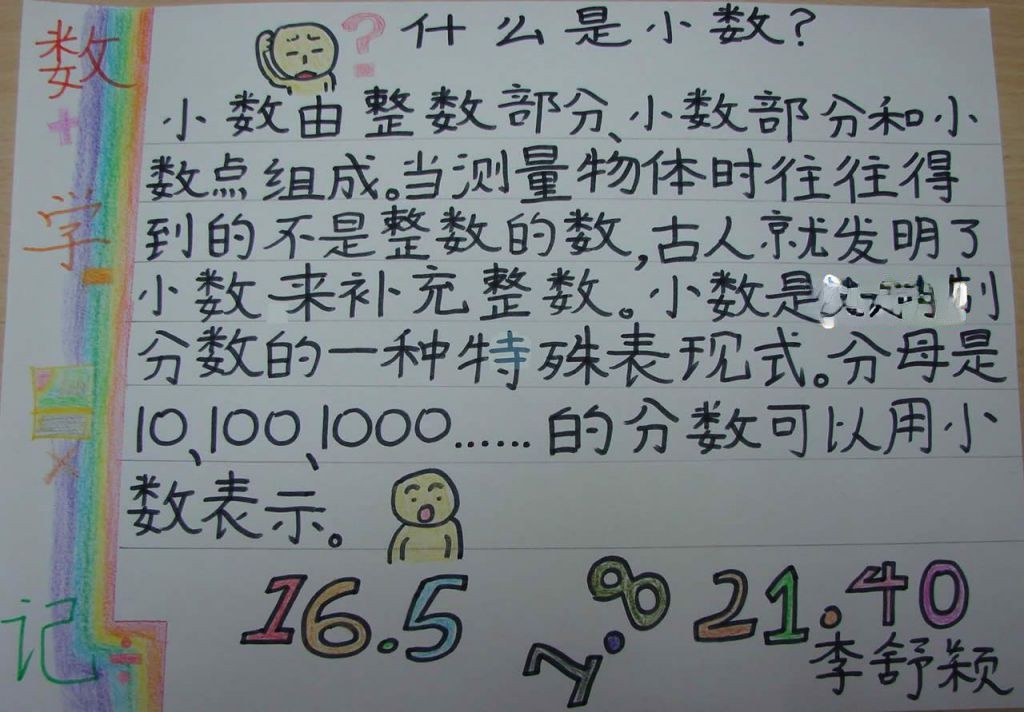 数
+
学
-
×
记
÷
? 什么是小数?
小数由整数部分、小数部分和小
数点组成。当测量物体时往往得
到的不是整数的数,古人就发明了
小数来补充整数。小数是
分数的一种特殊表现式。分母是
10、100、1000……的分数可以用小
数表示。
16.5
7.8
21.40
李舒颖